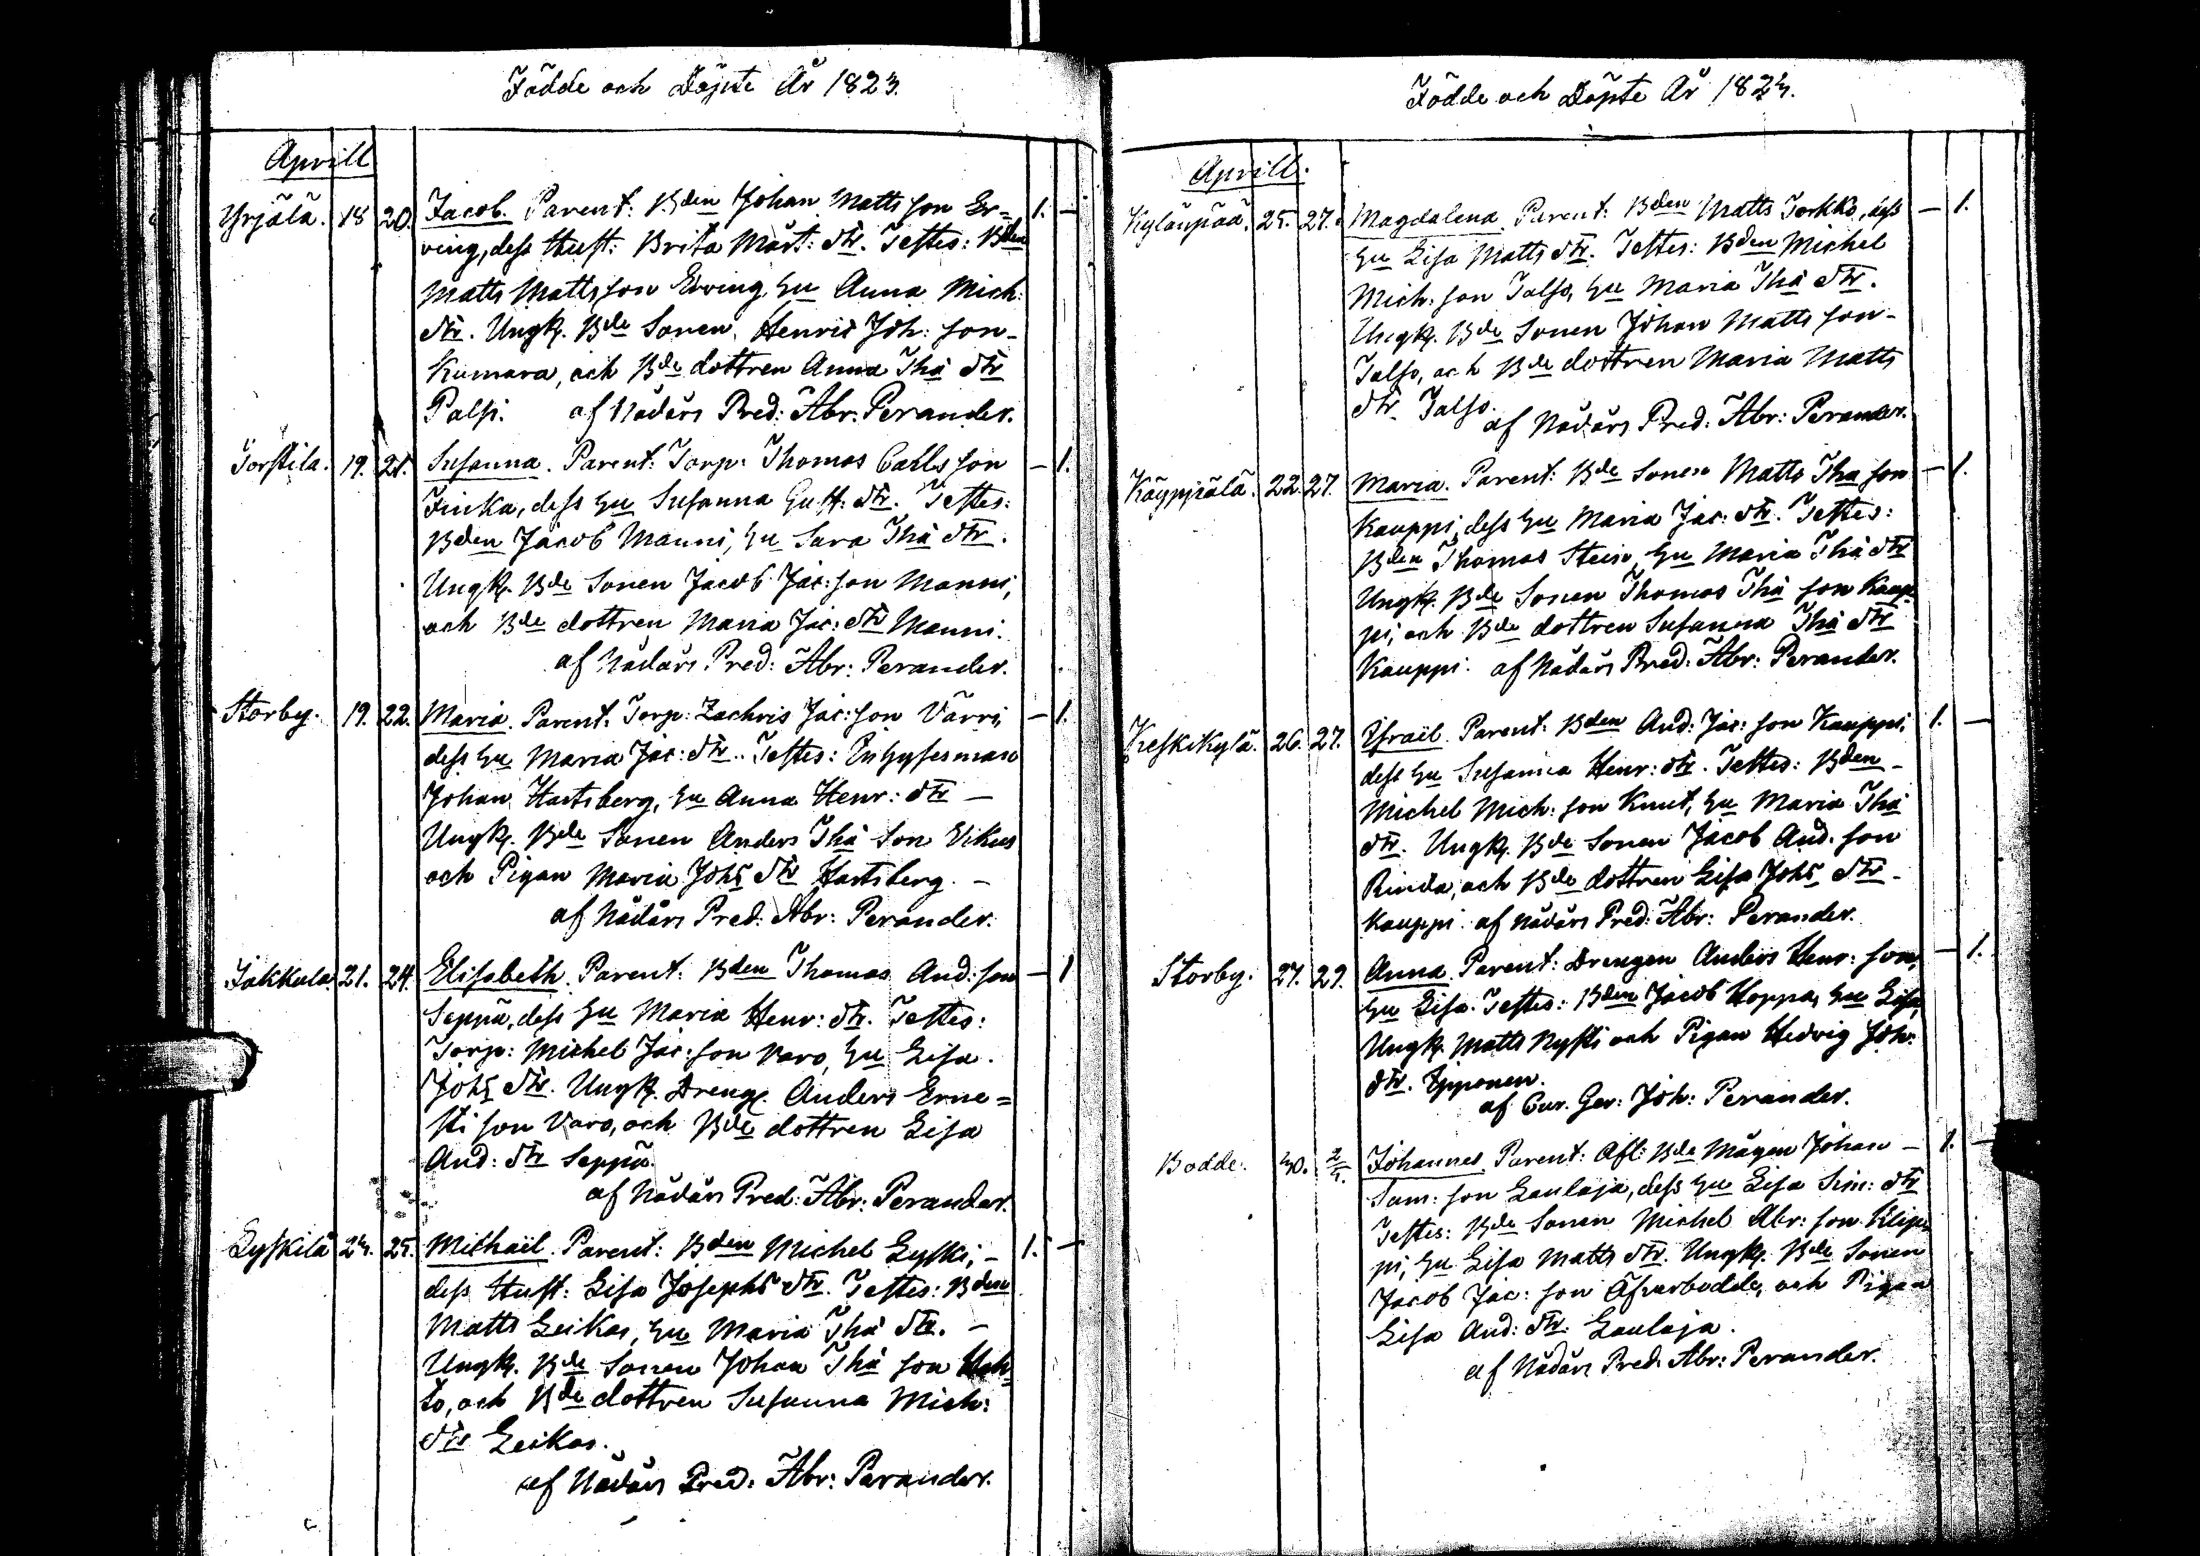 Födde och Döpte År 1823.
Aprill
Yrjälä. 18 20. Jacob. Parent: Bden Johan Matts son Er= 1. —
ving, dess Hust: Brita Mårt: dtr. Testes: Bden
Matts Matts son Erving, Hu Anna Mich:
dtr. Ungk. Bde Sonen Henric Joh: son
Kumara, och Bde dottren Anna Thå dtr
Palsi. af Nådårs Pred: Abr: Perander.
Torstila. 19. 21. Susanna. Parent: Torp: Thomas Carls son — 1.
Finka, dess Hu Susanna Gust: dtr. Testes:
Bden Jacob Manni, Hu Sara Thå dtr.
Ungk. Bde Sonen Jacob Jac: son Manni,
och Bde dottren Maria Jac: dtr Manni.
af Nådårs Pred: Abr: Perander.
Storby. 19. 22. Maria. Parent. Torp: Zachris Jac: son Värri — 1.
dess Hu Maria Jac: dtr. Testes: Inhysesman
Johan Hartsberg, Hu Anna Henr: dtr —
Ungk. Bde Sonen Anders Thå son Vikus
och Pigan Maria Johs dtr Hartsberg. —
af Nådårs Pred: Abr: Perander.
Jakkula. 21. 24. Elisabeth. Parent: Bden Thomas And: son — 1
Seppä, dess Hu Maria Henr: dtr. Testes:
Torp: Michel Jac: son Varo, Hu Lisa
Johs dtr. Ungk. Dreng. Anders Erne=
sti son Varo, och Bde dottren Lisa
And: dtr Seppä.
af Nådårs Pred: Abr: Perander.
Lyskilä 23. 25. Michaël. Parent: Bden Michel Lyski, — 1. —
dess Hust: Lisa Josephs dtr. Testes: Bden
Matts Leikas, Hu Maria Thå dtr. —
Ungk. Bde Sonen Johan Thå son
to, och Bde dottren Susanna Mich:
dtr Leikas.
af Nådårs Pred: Abr: Perander.
Födde och Döpte År 1823.
Aprill.
Kyläupää. 25. 27. Magdalena. Parent: Bden Matts Torkko, dess — 1.
Hu Lisa Matts dtr. Testes: Bden Michel
Mich: son Talso, Hu Maria Thå dtr.
Ungk. Bde Sonen Johan Matts son
Talso, och Bde dottren Maria Matts
dtr. Talso.
af Nådårs Pred: Abr: Perander.
Käyppjälä. 22. 27. Maria. Parent: Bde Sonen Matts Thå son — 1.
Kauppi, dess Hu Maria Jac: dtr. Testes:
Bden Thomas Hu Maria Thå dtr
Ungk. Bde Sonen Thomas Thå son Kaup
pi, och Bde dottren Susanna Thå dtr
Kauppi. af Nådårs Pred: Abr: Perander.
Keskikylä. 26. 27. Israël. Parent: Bden And: Jac: son Kauppi, 1. —
dess Hu Susanna Henr: dtr. Testes: Bden
Michel Mich: son Knut, Hu Maria Thå
dtr. Ungk. Bde Sonen Jacob And. son
Rinda, och Bde dottren Lisa Johs dtr
Kauppi. af Nådårs Pred: Abr: Perander.
Storby. 27. 29. Anna. Parent: Drengen Anders Henr: son, — 1.
Hu Lisa. Testes: Bden Jacob Hoppa, Hu Lisa,
Ungk. Matts Nysti och Pigan Hedvig Joh:
dtr. Epponen.
af Cur. Ger: Joh: Perander.
Bodde. 30. 2/5. Johannes. Parent: Afl: Bde Mågen Johan — 1. —
Sam: son Laulaja, dess Hu Lisa Sim: dtr
Testes: Bde Sonen Michel Abr: son Klip
pi, Hu Lisa Matts dtr. Ungk. Bde Sonen
Jacob Jac: son Åfvarbodde, och Pigan
Lisa And: dtr. Laulaja.
af Nådårs Pred: Abr: Perander.